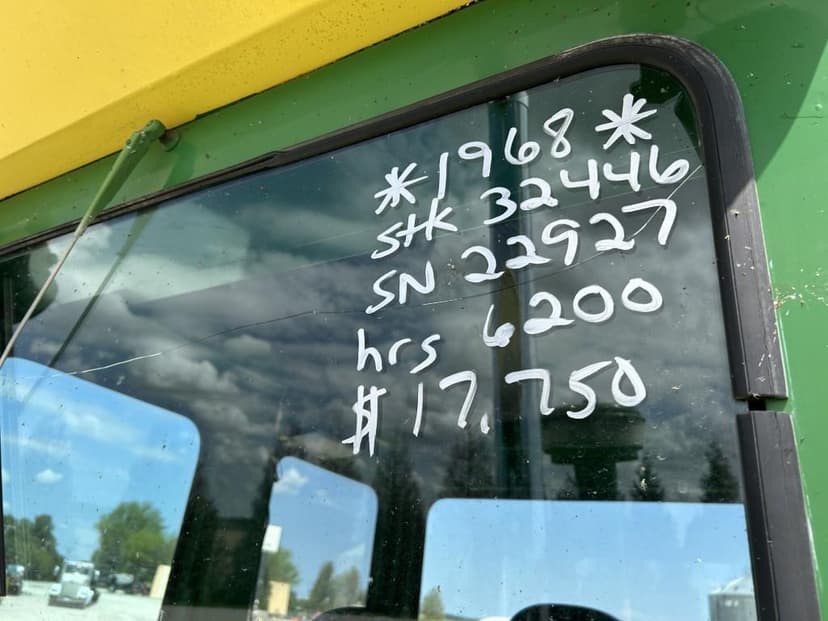 *1968*
stk 32446
SN 22927
hrs 6200
$17,750